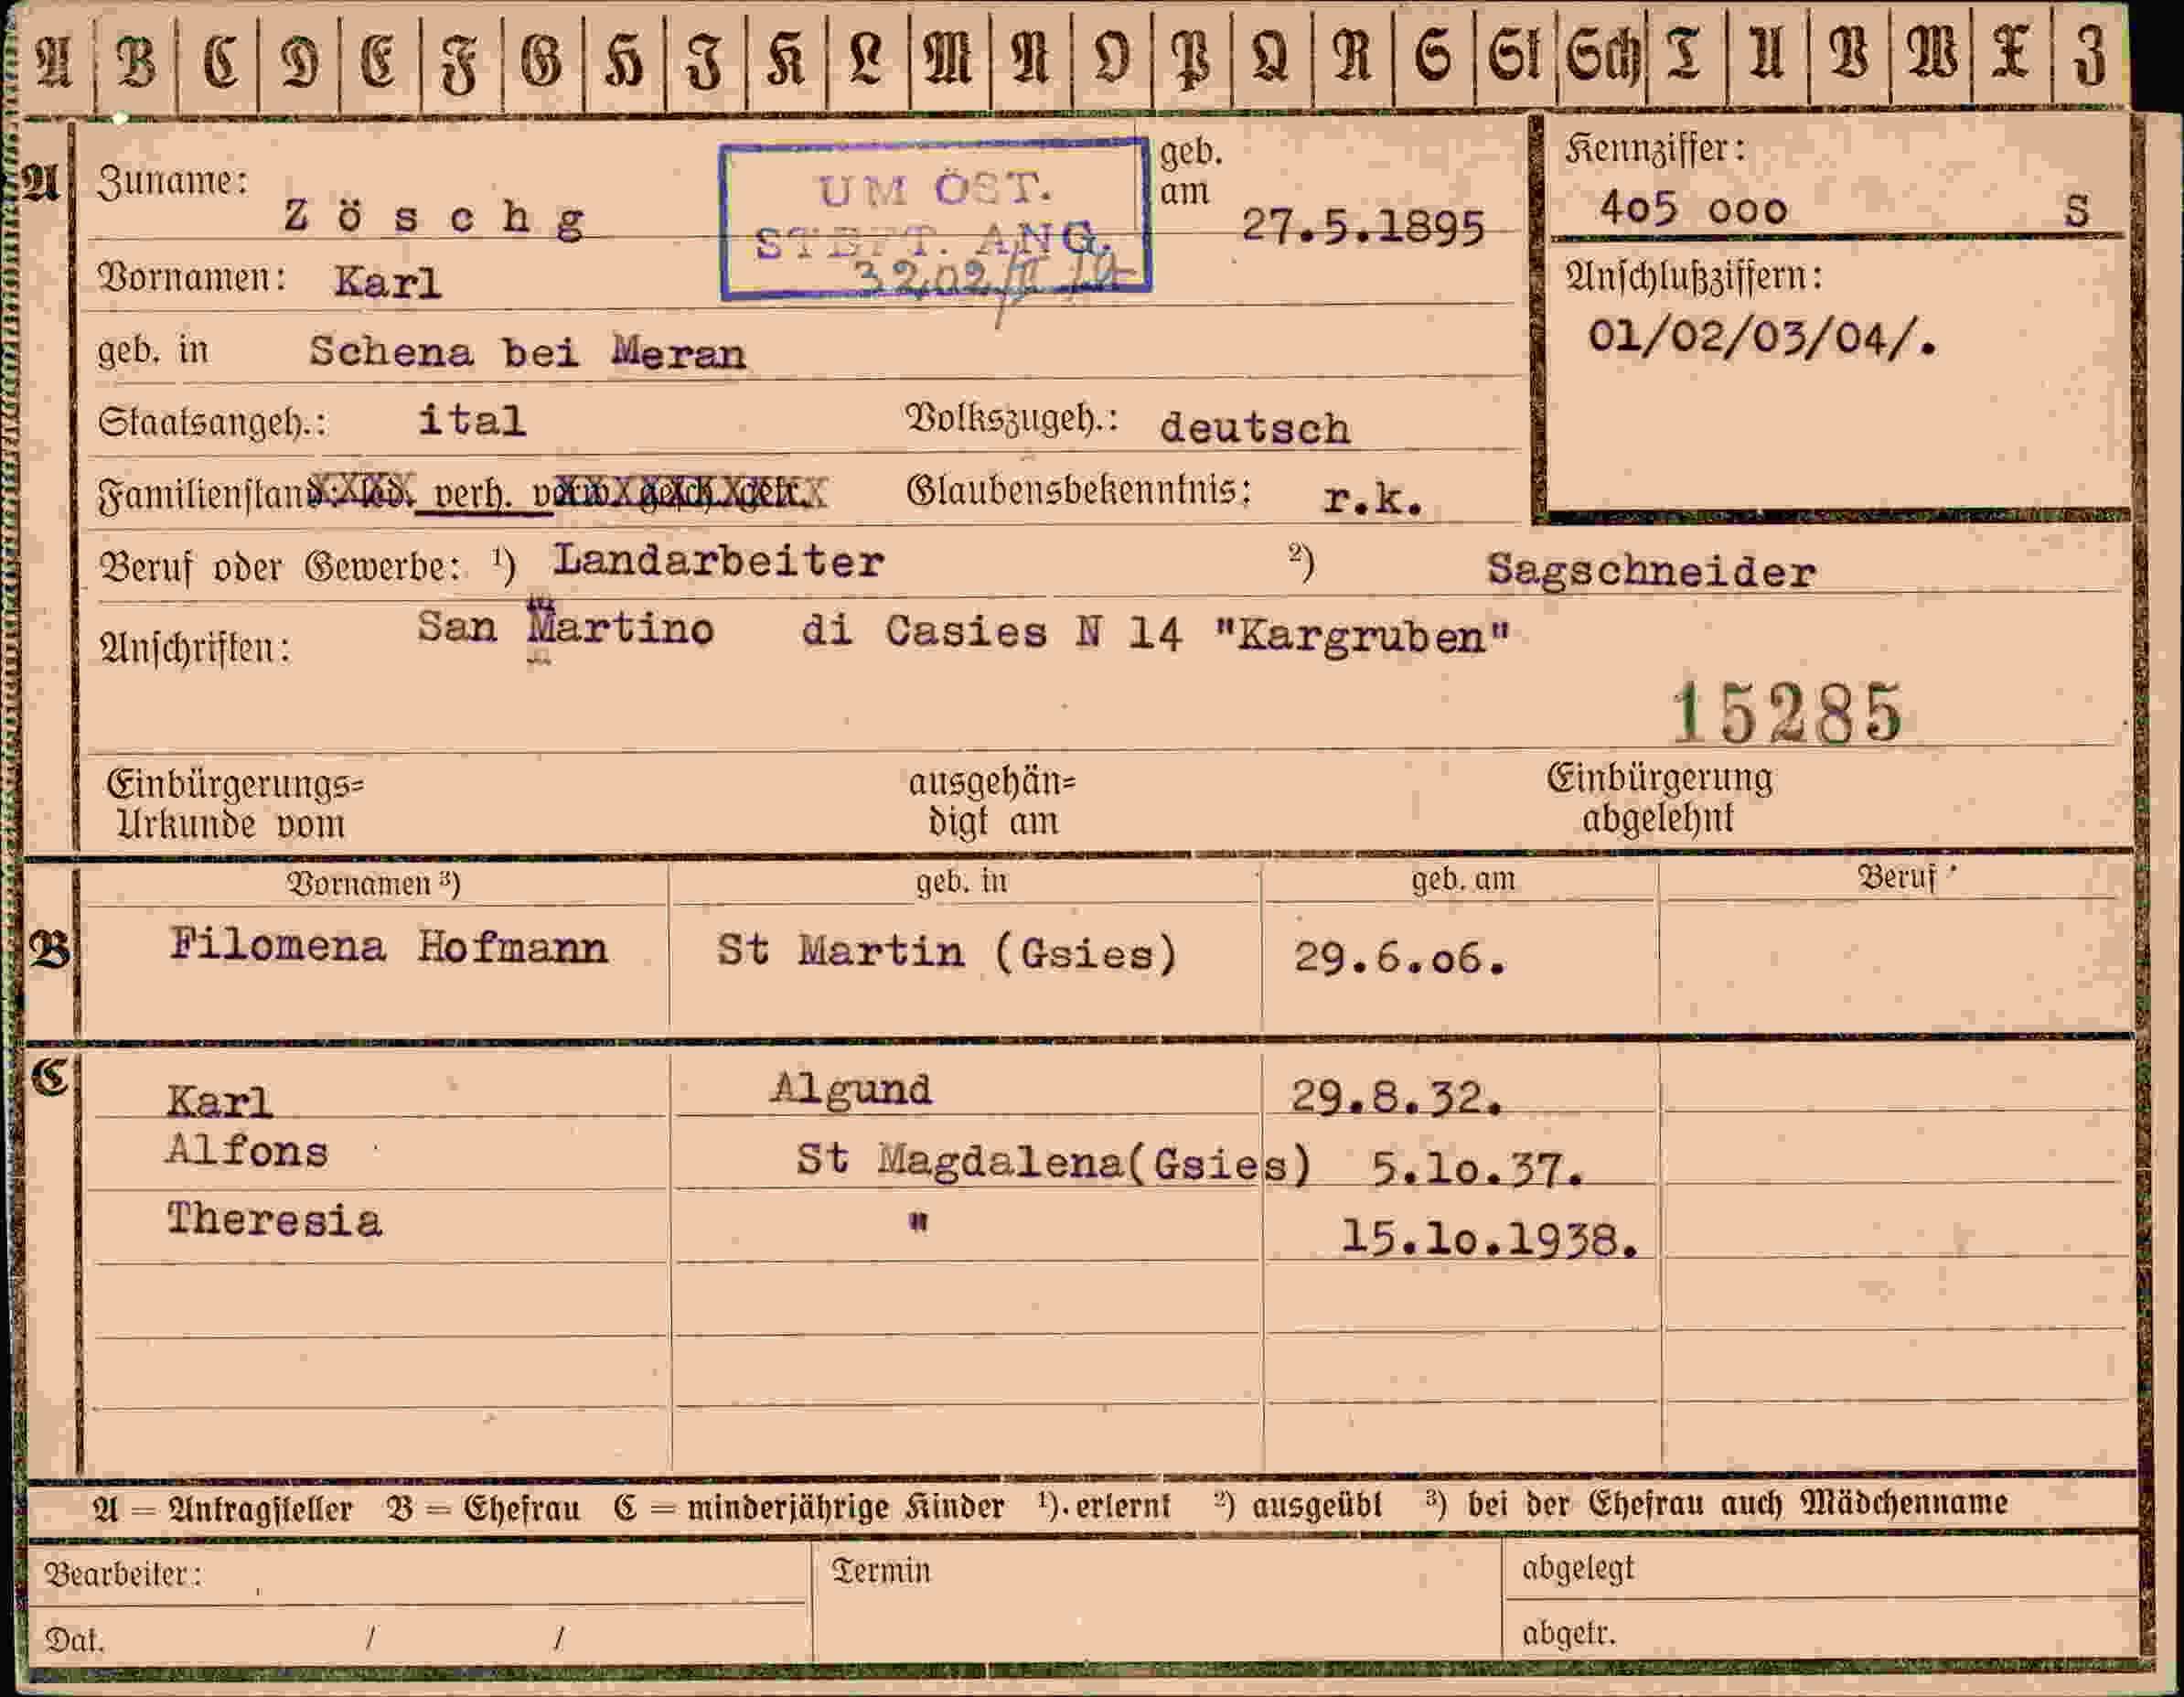 A B C D E F G H J K L M N O P Q R S St Sch T U V W X Z
A Zuname: Z ö s c h g
UM ÖST.
STBFT. ANG.
geb. am 27.5.1895
Kennziffer:
405 000 S
Vornamen: Karl
Anschlußziffern:
01/02/03/04/.
geb. in Schena bei Meran
Staatsangeh.: ital Volkszugeh.: deutsch
Familienstand: led. verh. verw. gesch. getr. Glaubensbekenntnis: r.k.
Beruf oder Gewerbe: ¹) Landarbeiter ²) Sagschneider
Anschriften: San Martino di Casies N 14 "Kargruben"
15285
Einbürgerungs= ausgehän= Einbürgerung
Urkunde vom digt am abgelehnt
Vornamen ³) geb. in geb. am Beruf
B Filomena Hofmann St Martin (Gsies) 29.6.06.
C Karl Algund 29.8.32.
Alfons St Magdalena(Gsies) 5.10.37.
Theresia " 15.10.1938.
A = Antragsteller B = Ehefrau C = minderjährige Kinder ¹). erlernt ²) ausgeübt ³) bei der Ehefrau auch Mädchenname
Bearbeiter: Termin abgelegt
Dat. / / abgetr.